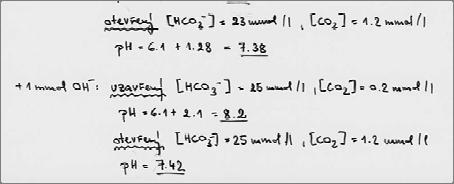 otevřený [HCO₃⁻] = 23 mmol/l, [CO₂] = 1.2 mmol/l
pH = 6.1 + 1.28 = 7.38
+ 1 mmol OH⁻: uzavřený [HCO₃⁻] = 25 mmol/l, [CO₂] = 0.2 mmol/l
pH = 6.1 + 2.1 = 8.2
otevřený [HCO₃⁻] = 25 mmol/l, [CO₂] = 1.2 mmol/l
pH = 7.42